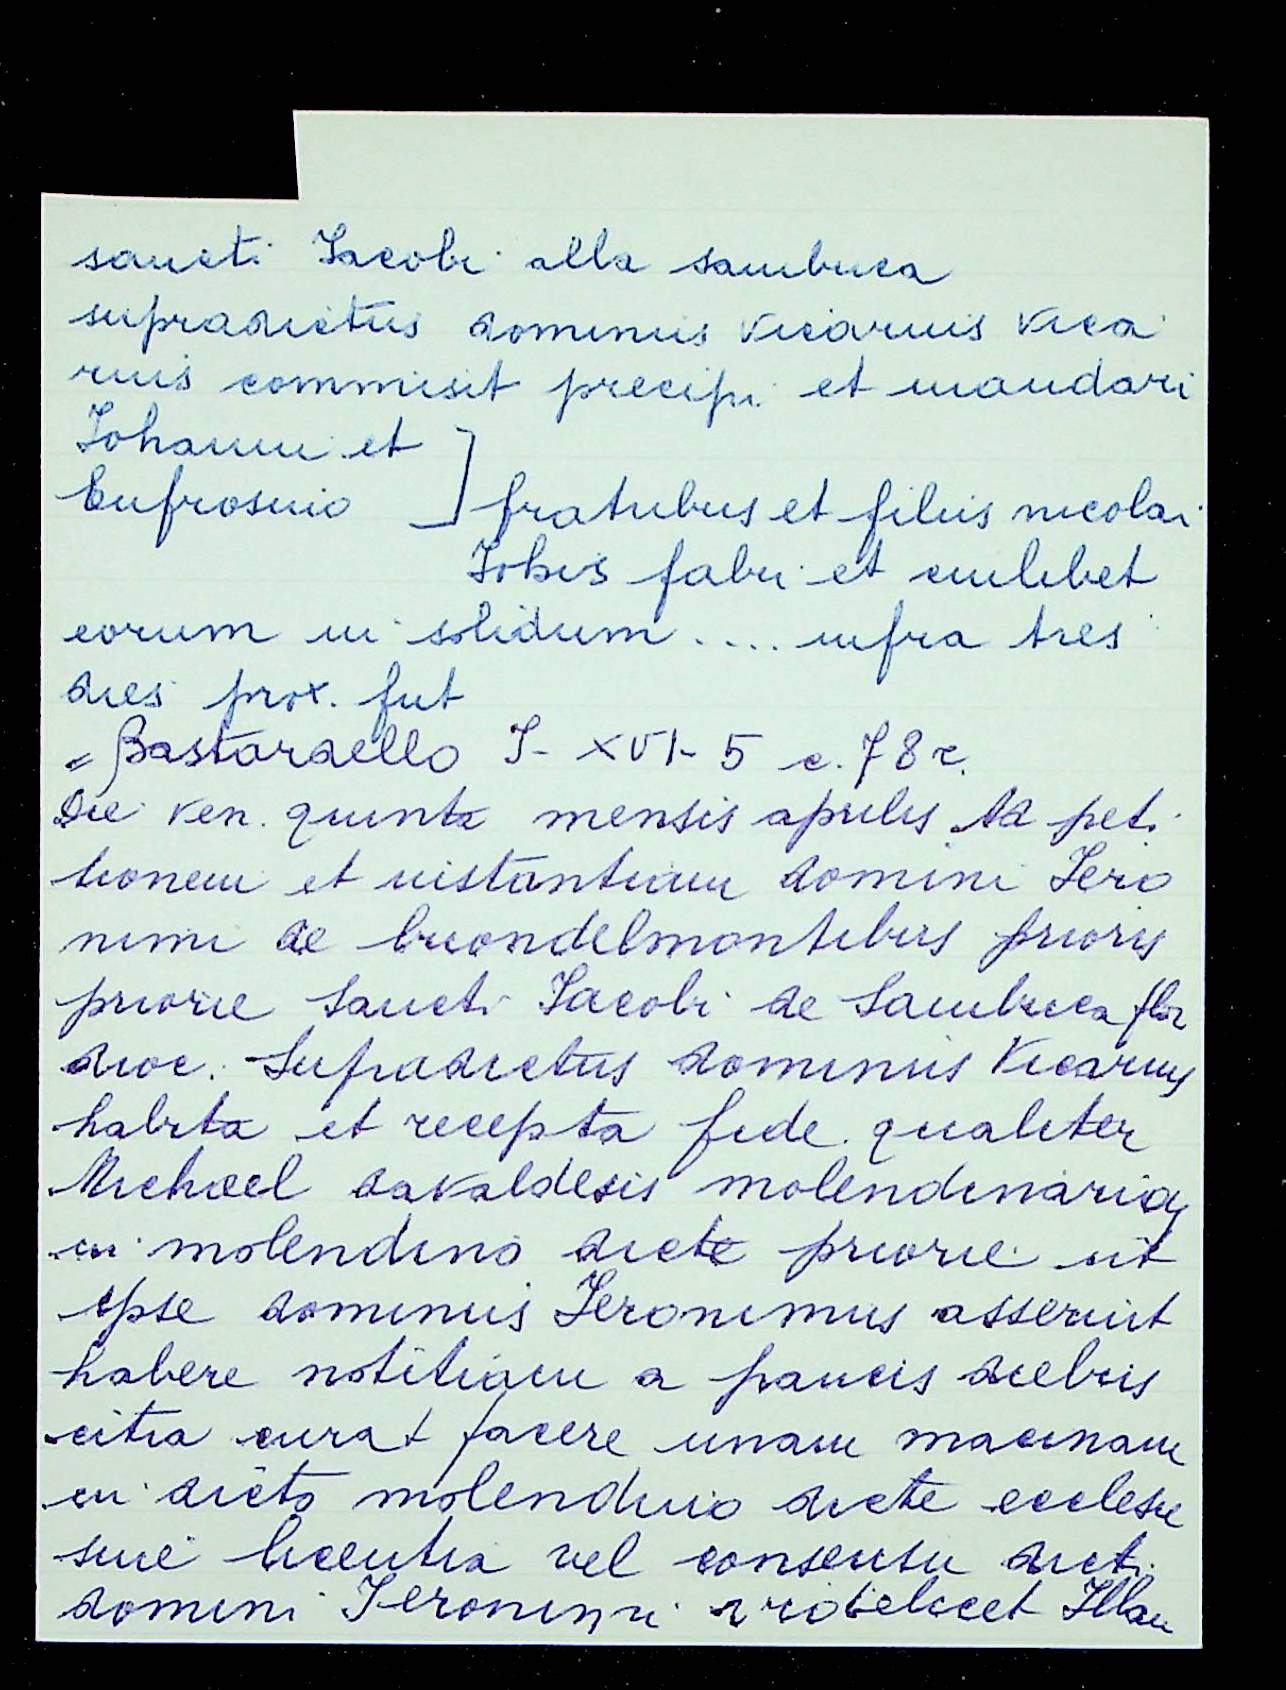 sancti Iacobi alla sambuca
supradictus dominus vicarius vica
rius commisit precipi et mandari
Iohanni et
Eufrosino ] fratribus et filiis nicolai
Iohis fabri et cuilibet
eorum in solidum .... infra tres
dies prox. fut
= Bastardello I- XVI- 5 c. 78 r.
Die ven. quinta mensis aprilis Ad peti
tionem et instantiam domini Iero
nimi de buondelmontibus prioris
priorie Sancti Iacobi de Sambuca flor
dioc. Supradictus dominus Vicarius
habita et recepta fide qualiter
Michael davaldesis molendinarius
in molendino dicte priorie ut
ipse dominus Ieronimus asseruit
habere notitiam a paucis diebus
citra curat facere unam macinam
in dicto molendino dicte ecclesie
sine licentia vel consensu dicti
domini Ieronimi videlicet Illam